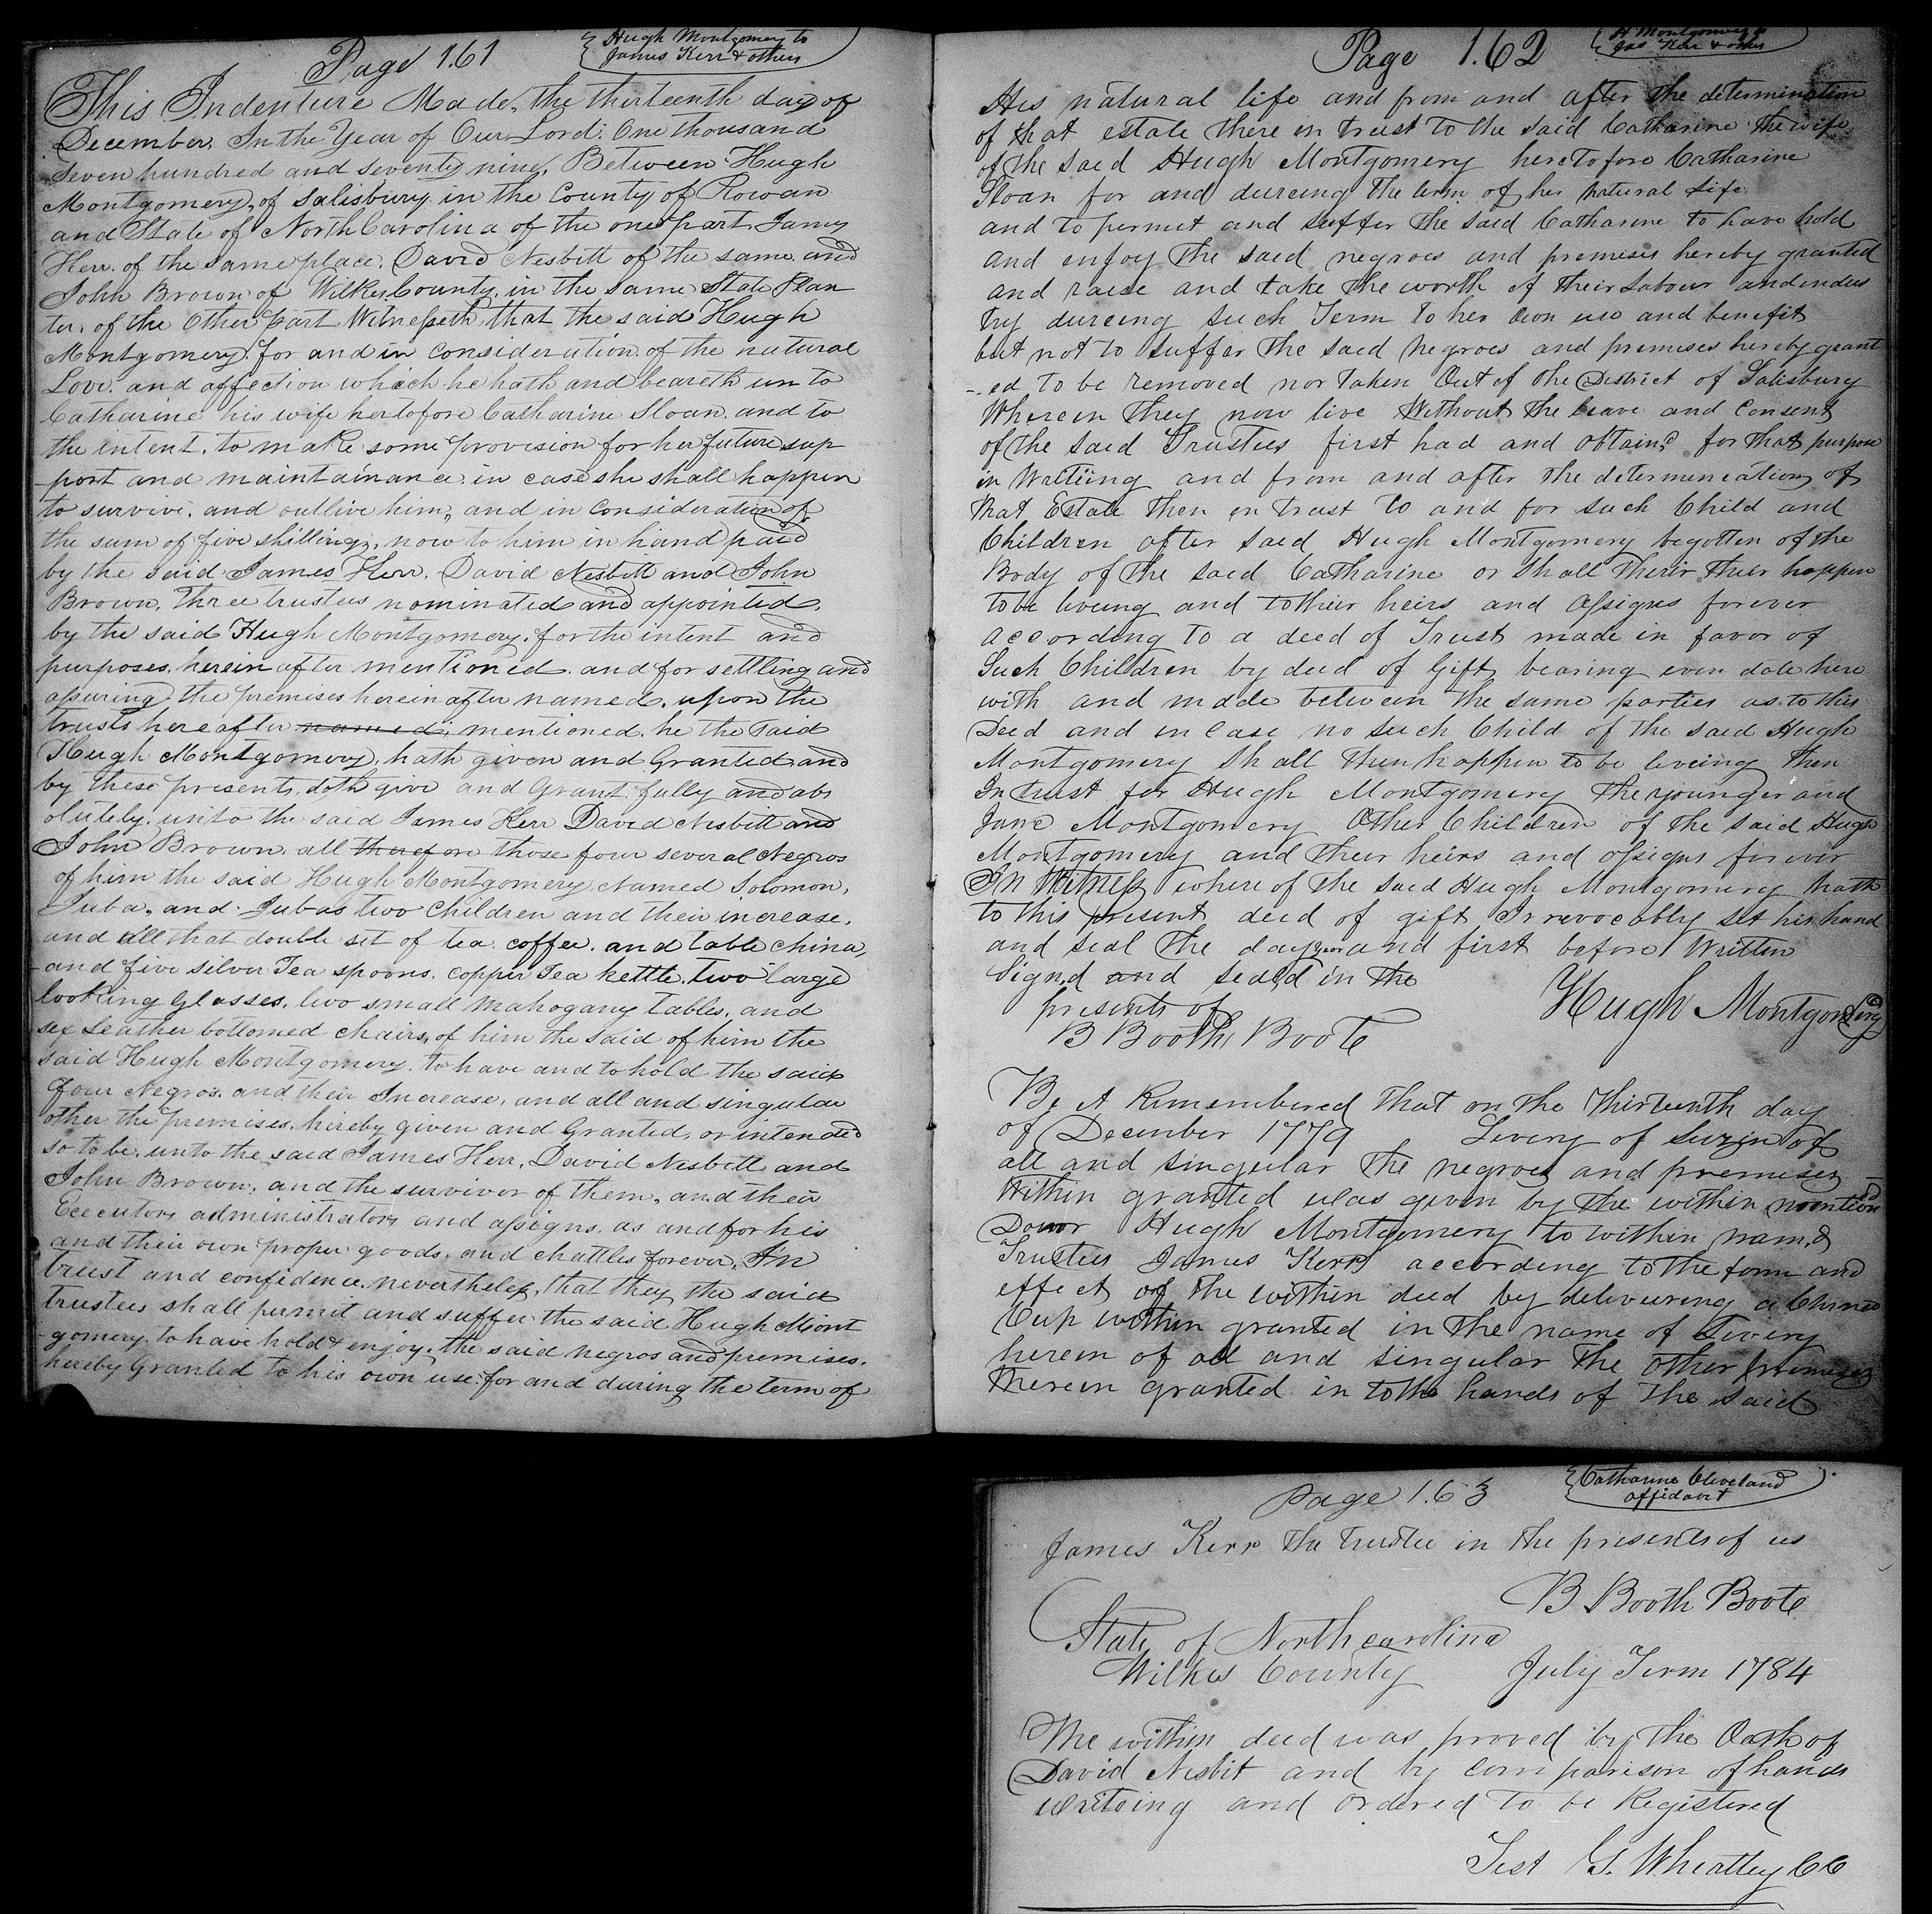 Page 161
Hugh Montgomery to
James Kerr & others
This Indenture Made, the thirteenth day of
December, In the Year of Our Lord: One thousand
Seven hundred and seventy nine, Between Hugh
Montgomery, of Salisbury in the County of Rowan
and State of North Carolina of the one part James
Kerr. of the same place. David Nesbitt of the same and
John Brown of Wilkes County, in the same State Plan
ter, of the Other part Witnesseth, that the said Hugh
Montgomery. for and in consideration of the natural
Love. and affection which he hath and beareth un to
Catharine his wife hertofore Catharine Sloan, and to
the intent, to make some provision for her future sup
port and maintainance. in case she shall happen
to survive. and outlive him, and in consideration of
the sum of five shillings, now to him in hand paid
by the said James Kerr. David Nesbitt and John
Brown, three trustees nominated and appointed,
by the said Hugh Montgomery. for the intent and
purposes, herein after mentioned and for settling and
assuring the premises herein after named. upon the
trusts here after named; mentioned. he the said
Hugh Montgomery, hath given and Granted and
by these presents, doth give and Grant fully and abs
olutely. unto the said James Kerr David Nesbitt and
John Brown. all therefore those four several Negros
of him the said Hugh Montgomery, Named Solomon,
Juba, and Jubas two children and their increase,
and all that double set of tea coffee. and table china,
and five silver Tea spoons. copper Tea kettle. two large
looking Glasses, two small mahogany tables, and
six Leather bottomed chairs, of him the said of him the
said Hugh Montgomery. to have and to hold the said
four Negros and their Increase, and all and singular
other the premises, hereby given and Granted, or intended
so to be, unto the said James Kerr, David Nesbitt and
John Brown, and the survivor of them, and their
Executors administrators and assigns. as and for his
and their own proper goods, and chattles forever, In
trust and confidence. nevertheless, that they the said
trustees shall permit and suffer the said Hugh Mont
gomery to have hold & enjoy. the said negros and premises.
hereby Granted to his own use for and during the term of
Page 162
H Montgomery to
Jas Kerr & others
His natural life and from and after the determination
of that estate there in trust to the said Catharine the wife
of the said Hugh Montgomery heretofore Catharine
Sloan for and dureing the term of her natural life
and to permit and suffer the said Catharine to have hold
and enjoy the said negroes and premises hereby granted
and raise and take the worth of their Labour and indus
try dureing such Term to her own use and benefit
but not to suffer the said negroes and premises hereby grant
-ed to be removed nor taken Out of the District of Salisbury
Wherein they now live Without the leave and Consent
of the said Trustees first had and obtaind for that purpose
in Writiing and from and after the determineation of
that Estate then in trust to and for such Child and
Children after said Hugh Montgomery begotten of the
Body of the said Catharine or shall their then happen
to be liveing and to their heirs and assigns forever
according to a deed of Trust made in favor of
Such Children by deed of Gift bearing even date here
with and made between the same parties as to this
Deed and in Case no such Child of the said Hugh
Montgomery shall then happen to be liveing then
In trust for Hugh Montgomery the younger and
Jane Montgomery Other Children of the said Hugh
Montgomery and their heirs and assigns forever
In Witness where of the said Hugh Montgomery hath
to this present deed of gift Irrevocably set his hand
and seal the day year and first before Written
Signd and seald in the
presents of
Hugh Montgomery
B Booth Boote
Be it Remembered that on the Thirteenth day
of December 1779 Livery of Seizin of
all and singular the negroes and premises
Within granted was given by the within mentiond
Donor Hugh Montgomery to within namd
Trustees James Kerr according to the form and
effect of the within deed by delivering a China
Cup within granted in the name of Livery
herein of all and singular the other premises
therein granted in to the hands of the said
Page 163
Catharine Cleveland
affidavit
James Kerr the trustee in the presents of us
B Booth Boote
State of North carolina
Wilkes County July Term 1784
The within deed was proved by the Oath of
David Nesbit and by Comparison of hand
writeing and ordered to be Registered
Test G. Wheatley CC